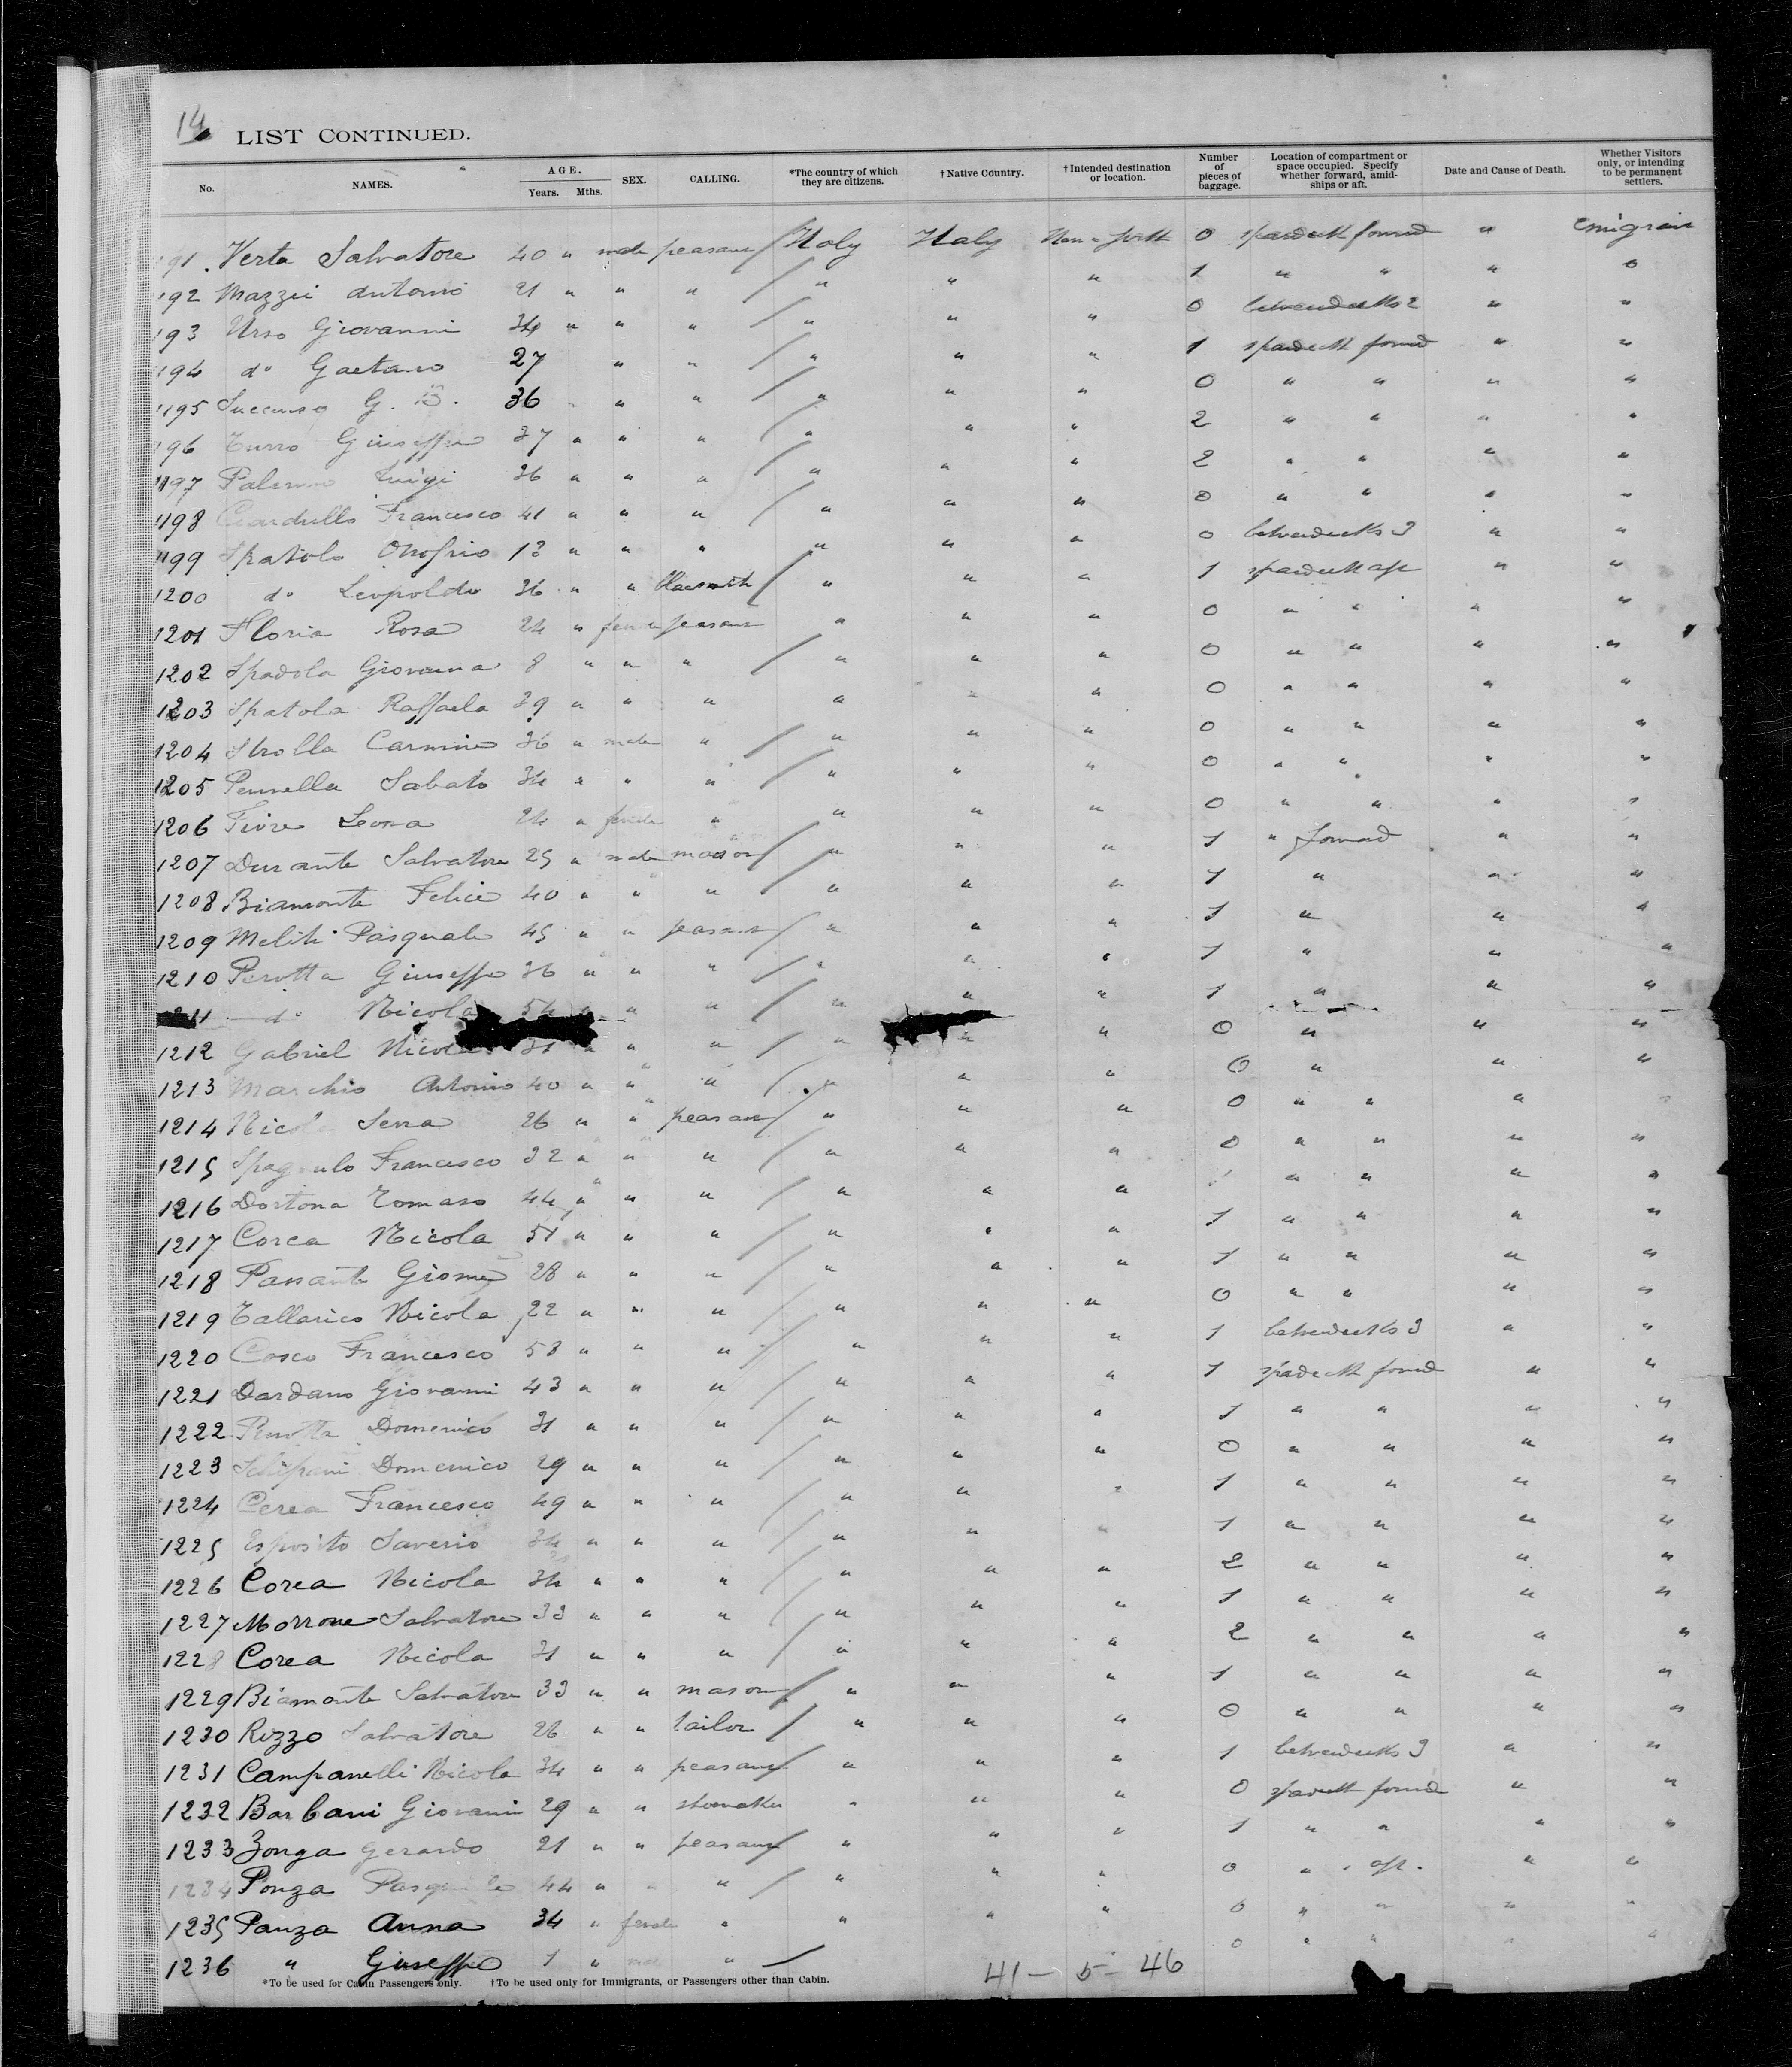 14
LIST CONTINUED.
No. NAMES. AGE. Years. Mths. SEX. CALLING. *The country of which they are citizens. †Native Country. †Intended destination or location. Number of pieces of baggage. Location of compartment or space occupied. Specify whether forward, amidships or aft. Date and Cause of Death. Whether Visitors only, or intending to be permanent settlers.
91 Verta Salvatore 40 " male peasant Italy Italy New-York 0 spardeck forwd "
192 Mazzei Antonio 21 " " " " " " 1 " " " "
193 Urso Giovanni 34 " " " " " " 0 betweendecks 2 " "
194 do Gaetano 27 " " " " " 1 spardeck forwd " "
1195 G. B. 36 " " " " " 0 " " " "
196 Turro Giuseppe 37 " " " " " " 2 " " " "
1197 Palermo Luigi 36 " " " " " " 2 " " " "
1198 Francesco 41 " " " " " " 0 " " " "
1199 Spatola Onofrio 13 " " " " " " 0 betweendecks 3 " "
1200 do Leopoldo 36 " " " " " 1 spardeck aft " "
1201 Floria Rosa 24 " female peasant " " " 0 " " " "
1202 Spadola Giovanna 8 " " " " " " 0 " " " "
1203 Spatola Raffaela 39 " " " " " " 0 " " " "
1204 Strolla Carmine 36 " male " " " " 0 " " " "
1205 Pennella Sabato 34 " " " " " " 0 " " " "
1206 Fiore Leona 24 " female " " " " 0 " " " "
1207 Durante Salvatore 25 " male mason " " " 1 " forward " "
1208 Biamonte Felice 40 " " " " " " 1 " " "
1209 Meliti Pasquale 45 " " peasant " " " 1 " " "
1210 Perotta Giuseppe 36 " " " " " " 1 " " "
11 do Nicola 54 " " " " " " 1 " " "
1212 Gabriel Nicola 31 " " " " " " 0 " " "
1213 Marchio Antonio 40 " " " " " " 0 " " "
1214 Nicola Serra 26 " " peasant " " " 0 " " " "
1215 Spagnulo Francesco 32 " " " " " " 0 " " " "
1216 Dortona Tomaso 44 " " " " " " 1 " " " "
1217 Corea Nicola 51 " " " " " " 1 " " " "
1218 Passante 28 " " " " " " 1 " " " "
1219 Tallarico Nicola 22 " " " " " " 0 " " " "
1220 Cosco Francesco 53 " " " " " " 1 betweendecks 3 " "
1221 Dardano Giovanni 43 " " " " " " 1 spardeck forwd " "
1222 Perotta Domenico 31 " " " " " " 1 " " " "
1223 Schipani Domenico 29 " " " " " " 0 " " " "
1224 Cerea Francesco 49 " " " " " " 1 " " " "
1225 Esposito Saverio 34 " " " " " " 1 " " " "
1226 Corea Nicola 34 " " " " " " 2 " " " "
1227 Morrone Salvatore 33 " " " " " " 1 " " " "
1228 Corea Nicola 31 " " " " " " 2 " " " "
1229 Biamonte Salvatore 33 " " mason " " " 1 " " " "
1230 Rizzo Salvatore 26 " " tailor " " " 0 " " " "
1231 Campanelli Nicola 34 " " peasant " " " 1 betweendecks 3 " "
1232 Barbani Giovanni 29 " " shoemaker " " " 0 spardeck forwd " "
1233 Zonga Gerardo 21 " " peasant " " " 1 " " " "
1234 Ponza Pasquale 44 " " " " " " 0 " " aft. " "
1235 Panza Anna 34 " female " " " " 0 " " " "
1236 " Giuseppe 1 " male " 0 " " " "
*To be used for Cabin Passengers only. †To be used only for Immigrants, or Passengers other than Cabin.
41 - 5 - 46